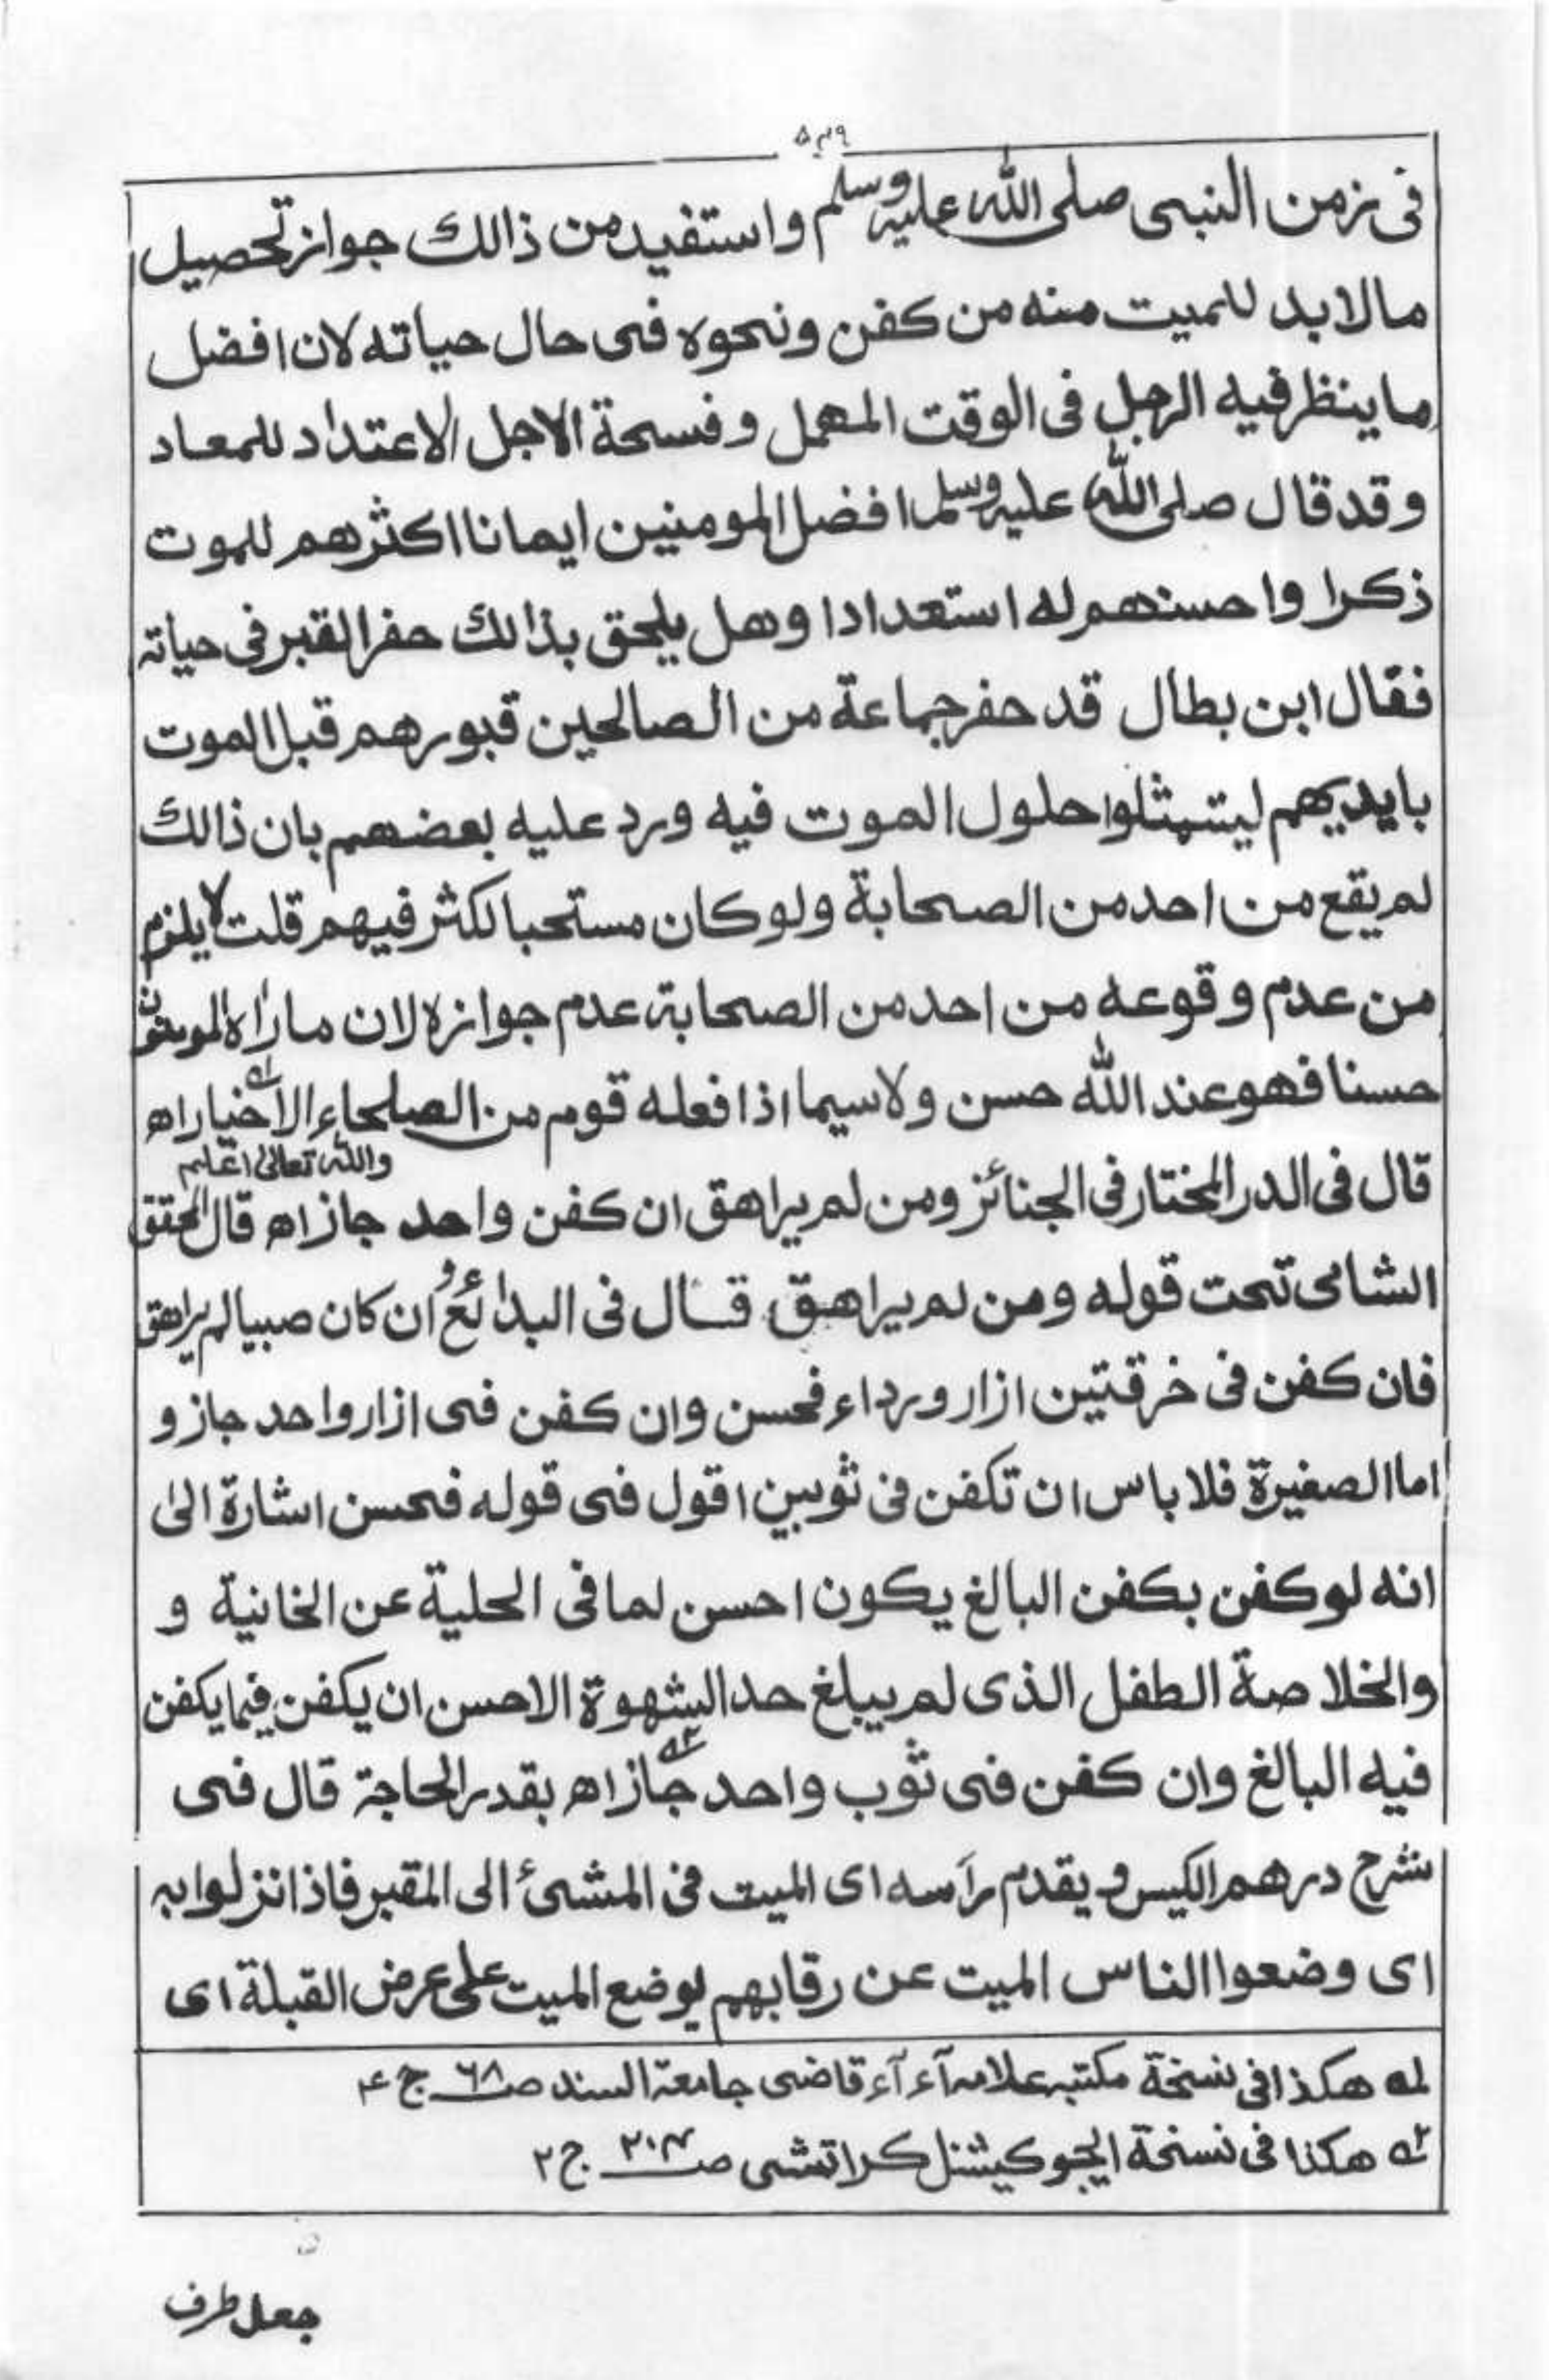 ٥٣٩
فی زمن النبی صلی اللہ علیہ وسلم واستفید من ذالك جواز تحصیل
مالا بد للمیت منه من کفن ونحوه فی حال حیاته لان افضل
ما ینظر فیه الرجل فی الوقت المهمل وفسحة الاجل الاعتداد للمعاد
وقد قال صلی اللہ علیہ وسلم افضل المومنین ایمانا اکثرهم للموت
ذکرا واحسنهم له استعدادا وهل یلحق بذالك حفر القبر فی حیاته
فقال ابن بطال قد حفر جماعة من الصالحین قبورهم قبل الموت
بایدیهم لیتمثلوا حلول الموت فیه ورد علیه بعضهم بان ذالك
لم یقع من احد من الصحابة ولو کان مستحبا لکثر فیهم قلت لا یلزم
من عدم وقوعه من احد من الصحابة عدم جوازه لان ما راٰه المومنون
حسنا فهو عند اللہ حسن ولاسیما اذا فعله قوم من الصلحاء الاخیار اه
واللہ تعالیٰ اعلم
قال فی الدر المختار فی الجنائز ومن لم یراهق ان کفن واحد جاز اه قال المحقق
الشامی تحت قوله ومن لم یراهق قال فی البدائع وان کان صبیا لم یراهق
فان کفن فی خرقتین ازار ورداء فحسن وان کفن فی ازار واحد جاز و
اما الصغیرة فلا باس ان تکفن فی ثوبین اقول فی قوله فحسن اشارة الیٰ
انه لو کفن بکفن البالغ یکون احسن لما فی الحلیة عن الخانیة و
والخلاصة الطفل الذی لم یبلغ حد الشهوة الاحسن ان یکفن فیما یکفن
فیه البالغ وان کفن فی ثوب واحد جاز اه بقدر الحاجة قال فی
شرح درهم الکیس ویقدم رآسه ای المیت فی المشیٔ الی المقبر فاذا نزلوا به
ای وضعوا الناس المیت عن رقابهم یوضع المیت علی عرض القبلة ای
لے هکذا فی نسخة مکتبه علامه آء آء قاضی جامعة السند صـ ٦٨ ج ۴
٢ے هکذا فی نسخة ایجوکیشنل کراتشی صـ ٢٠۴ ج ٢
جعل طرف